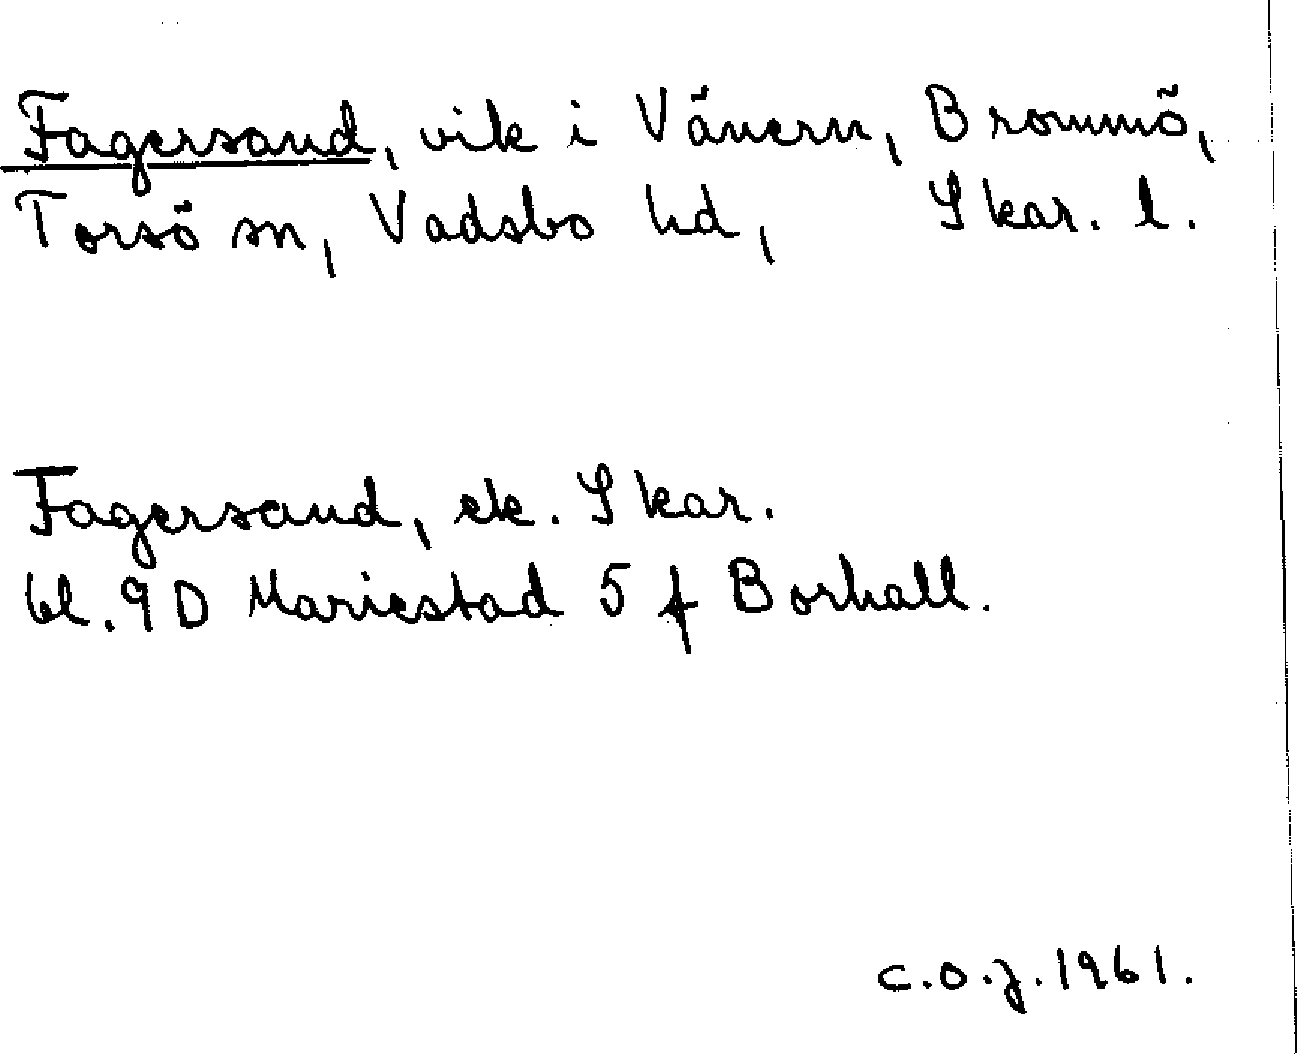 Fagersand, vik i Vänern, Brommö,
Torsö sn, Vadsbo hd, Skar. l.
Fagersand, ek. Skar.
bl. 9D Mariestad 5 f Borhall.
C.O.J. 1961.